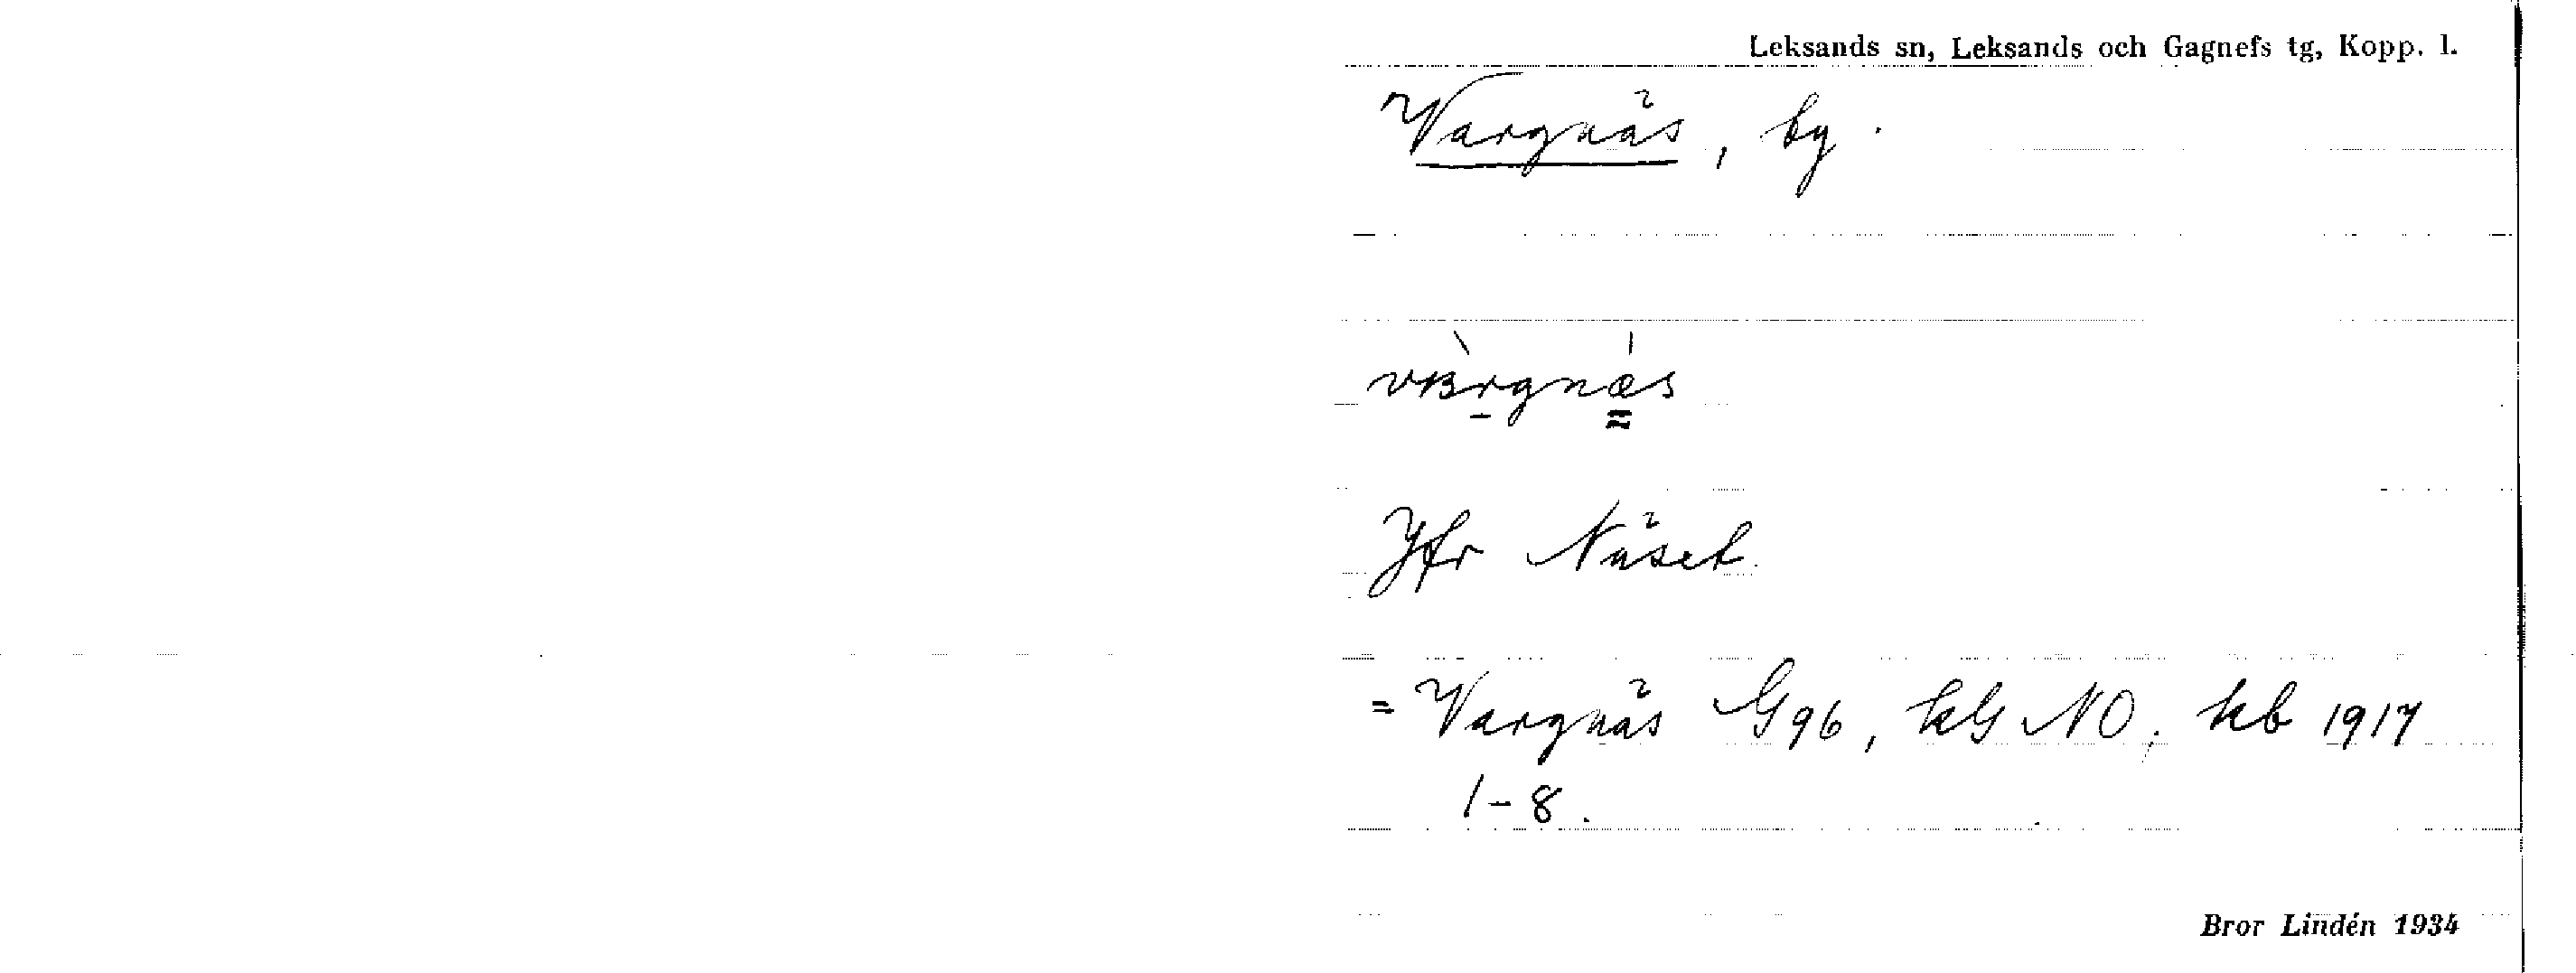 Leksands sn, Leksands och Gagnefs tg, Kopp. l.
Vargnäs, by.
vʙrgnæs
Jfr Näset.
= Vargnäs G96, kG NO; kb 1917
1-8.
Bror Lindén 1934